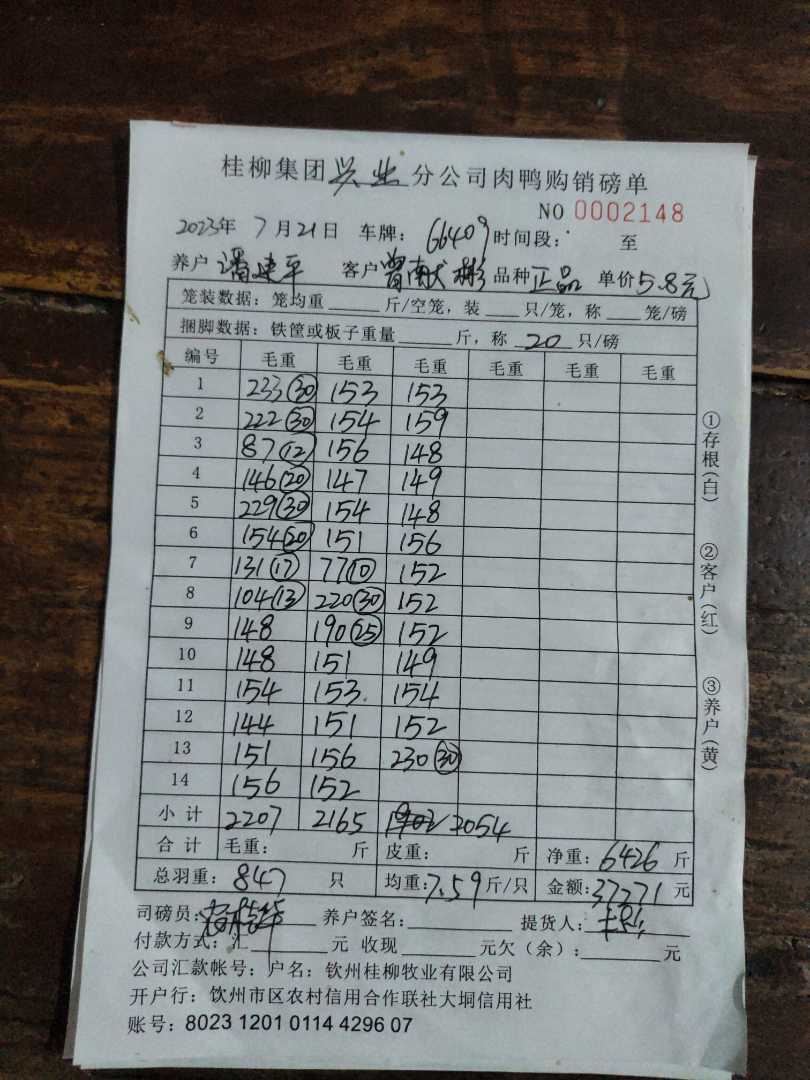 桂柳集团兴业分公司肉鸭购销磅单
NO 0002148
2023年 7月21日 车牌: 66409 时间段: 至
养户 潘建平 客户 曾献彬 品种 正品 单价 5.8元
笼装数据: 笼均重 斤/空笼, 装 只/笼, 称 笼/磅
捆脚数据: 铁筐或板子重量 斤, 称 20 只/磅
编号 毛重 毛重 毛重 毛重 毛重 毛重
1 233(30) 153 153
2 222(30) 154 159
3 87(12) 156 148
4 146(20) 147 149
5 229(30) 154 148
6 154(20) 151 156
7 131(17) 77(10) 152
8 104(13) 220(30) 152
9 148 190(25) 152
10 148 151 149
11 154 153 154
12 144 151 152
13 151 156 230(30)
14 156 152
小计 2207 2165 2054
合计 毛重: 斤 皮重: 斤 净重: 6426 斤
总羽重: 847 只 均重: 7.59 斤/只 金额: 37271 元
司磅员: 养户签名: 提货人:
付款方式: 汇 元 收现 元欠(余): 元
公司汇款帐号: 户名: 钦州桂柳牧业有限公司
开户行: 钦州市区农村信用合作联社大垌信用社
账号: 8023 1201 0114 4296 07
①存根(白)
②客户(红)
③养户(黄)